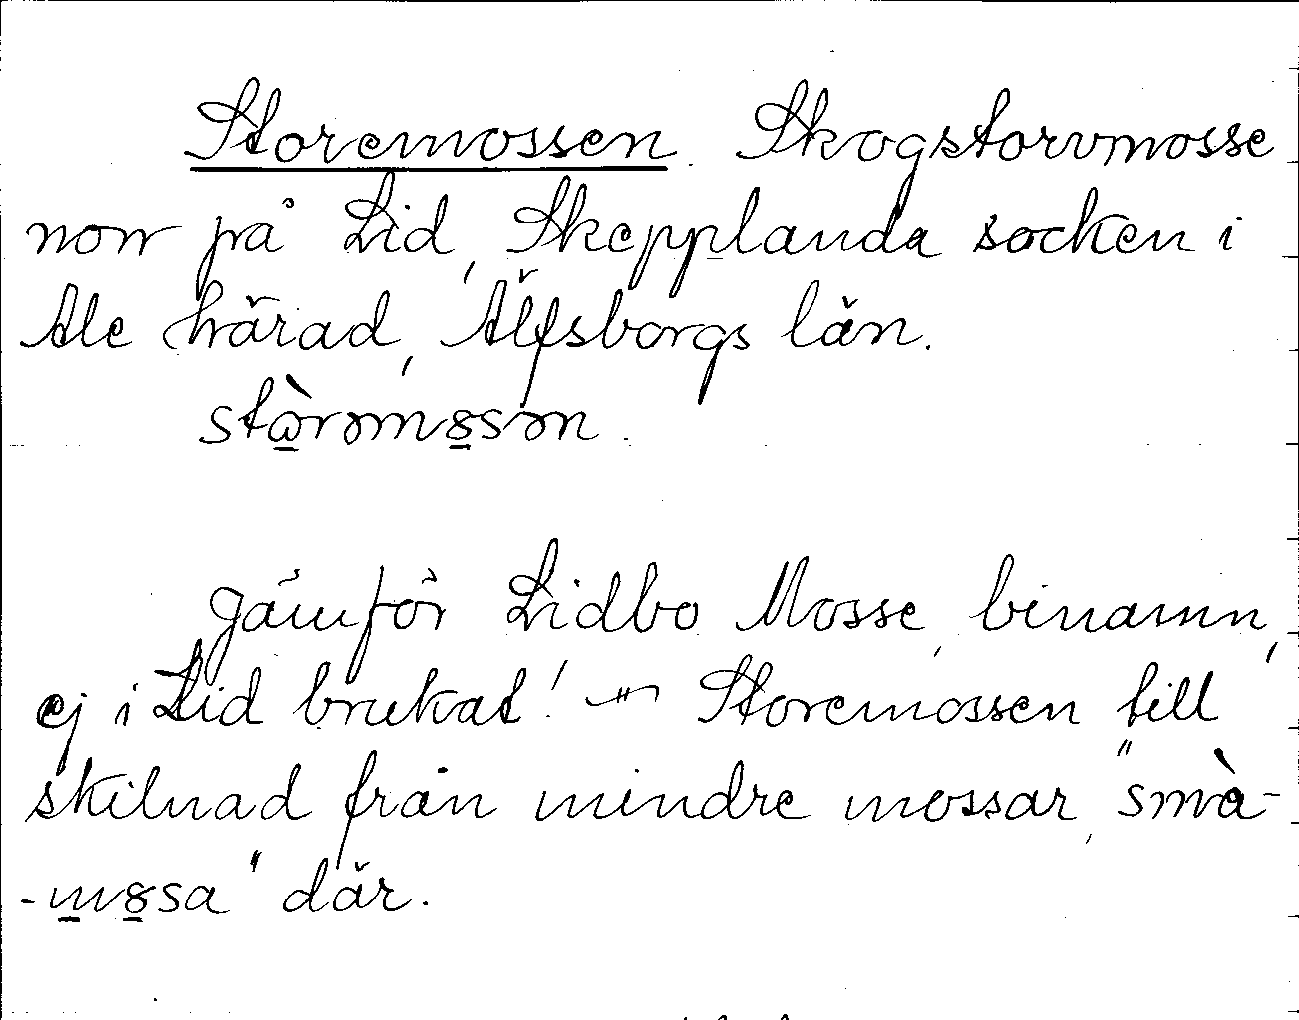 Storemossen. Skogstorvmosse
norr på Lid, Skepplanda socken i
Ale härad, Älfsborgs län.
stòrəmȣsən.
Jämför Lidbo Mosse, binamn,
ej i Lid brukat! — Storemossen till
skilnad från mindre mossar, "små-
-mȣsa" där.